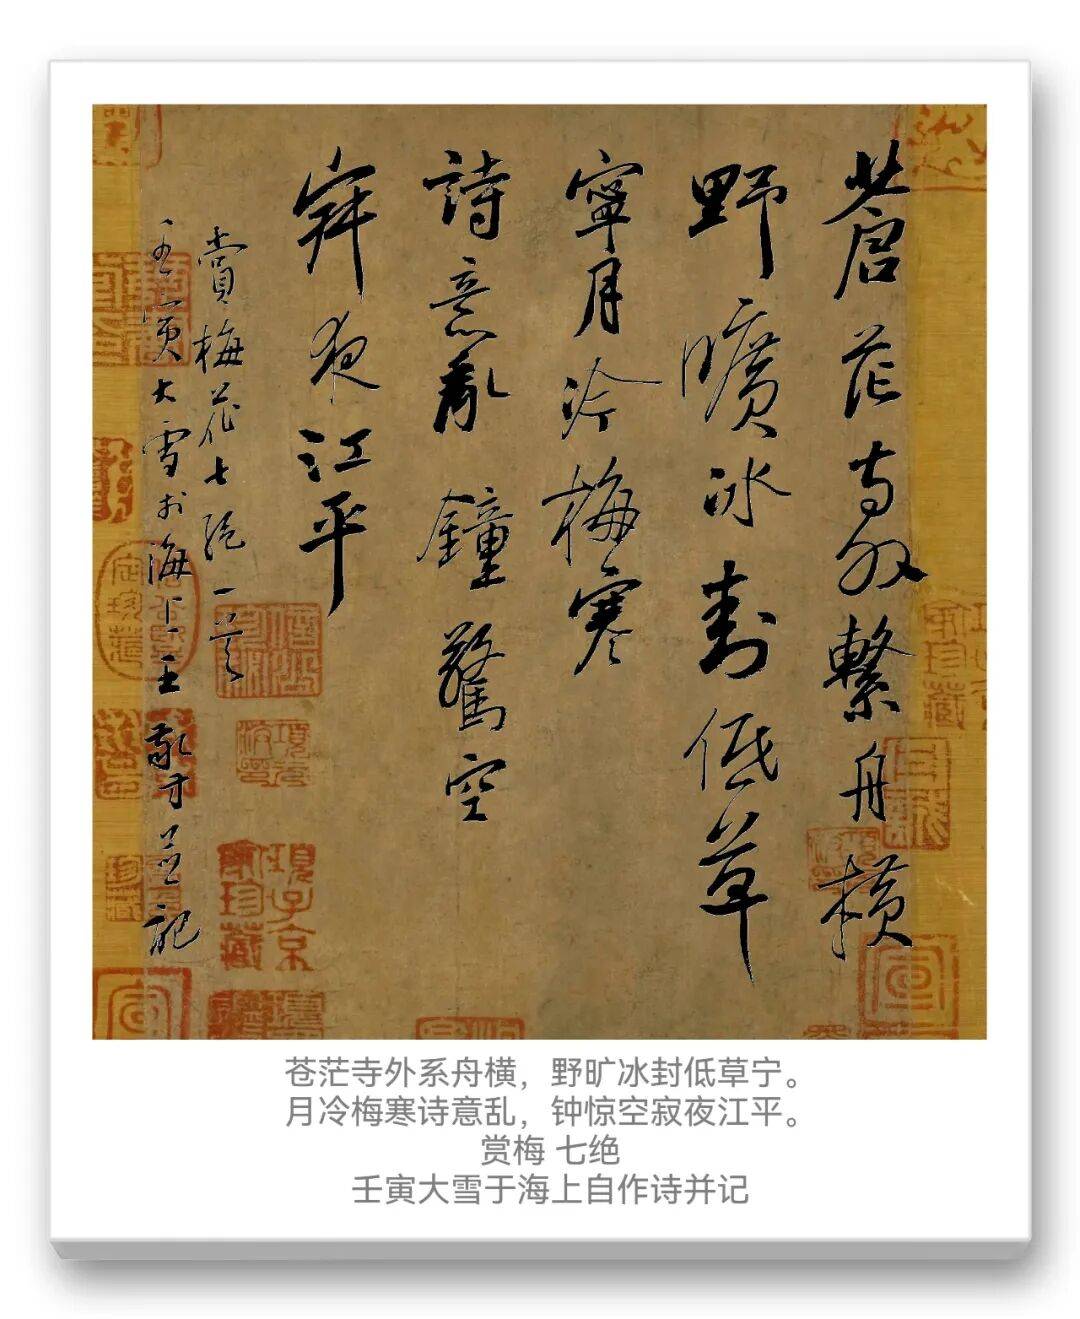 蒼茫寺外繫舟橫
野曠冰封低草
寧月冷梅寒
詩意亂鐘驚空
寂夜江平
賞梅花七絕一首
壬寅大雪於海上王敬之並記
項子京
珍藏
苍茫寺外系舟横，野旷冰封低草宁。
月冷梅寒诗意乱，钟惊空寂夜江平。
赏梅 七绝
壬寅大雪于海上自作诗并记